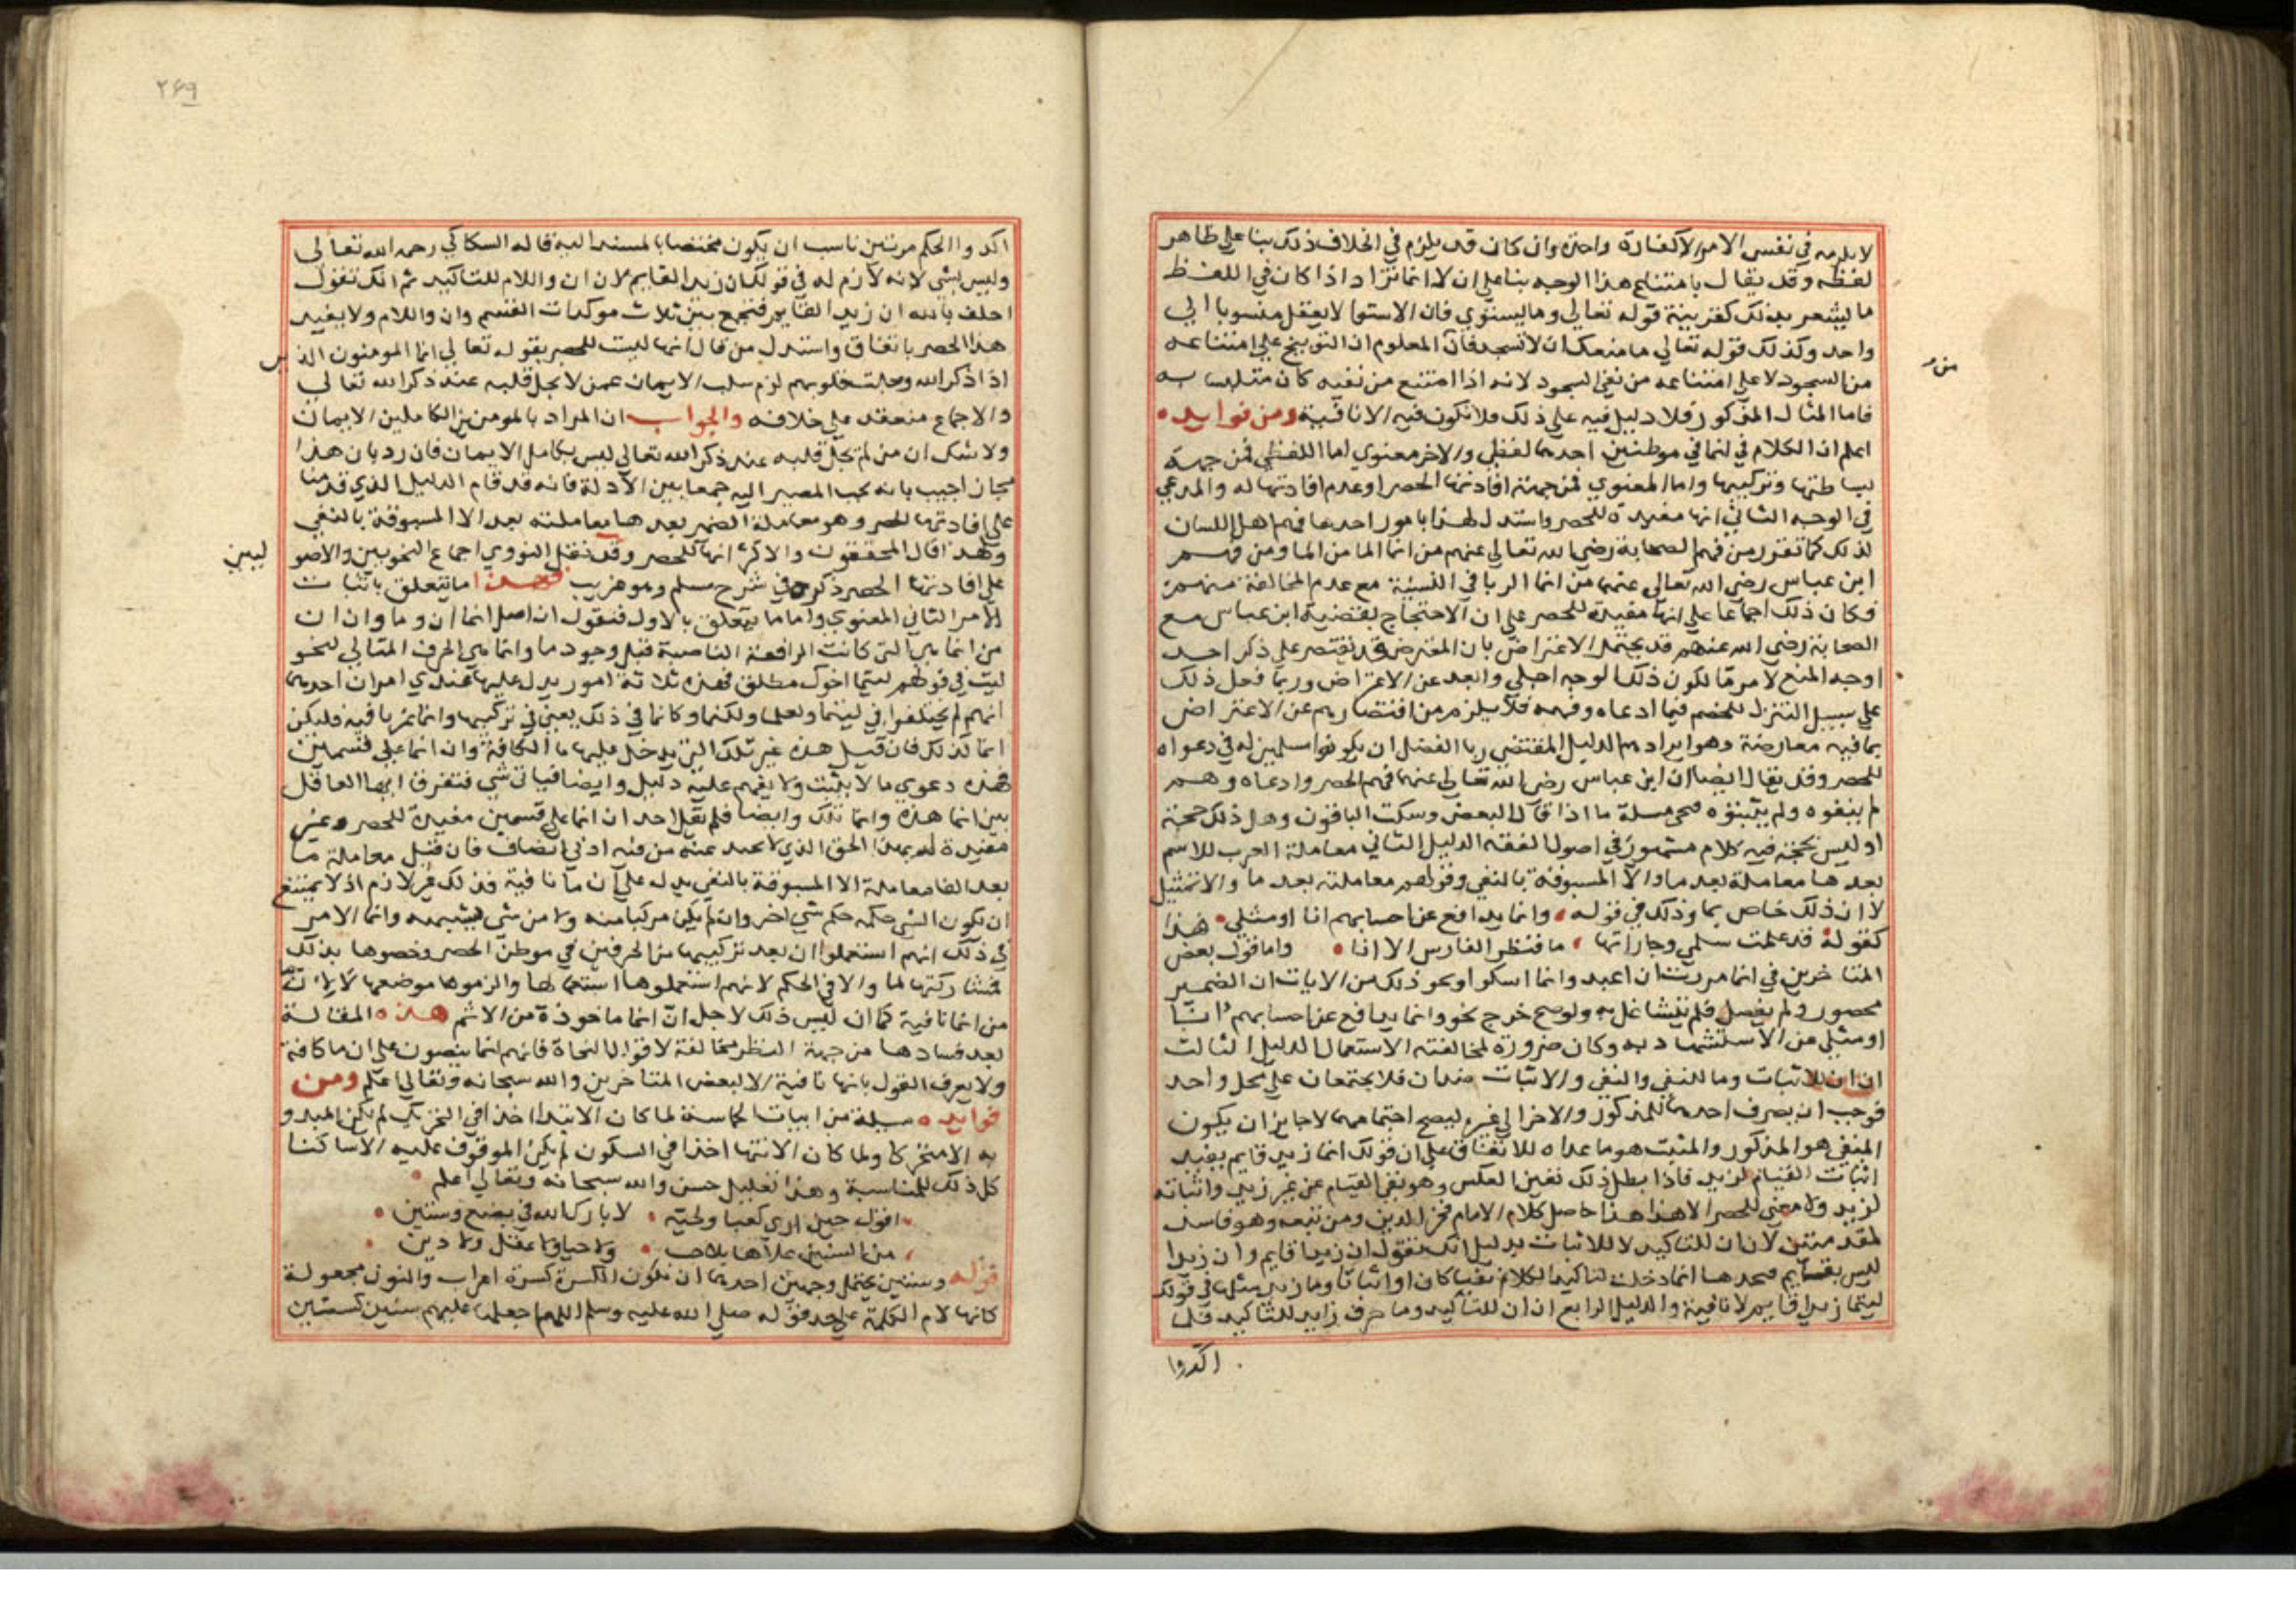 لا يلزمه في نفس الامر الا كفارة واحدة وان كان قد يلزم في الخلاف ذلك بنا على ظاهر
لفظه وقد يقال بامتناع هذا الوجه بنا على ان لا انما تزاد اذا كان في اللفظ
ما يشعر بذلك كقرينة قوله تعالى وما يستوي فان الاستوا لا يعقل منسوبا الى
واحد وكذلك قوله تعالى ما منعك ان لا تسجد فان المعلوم ان التوبيخ على امتناعه
من السجود لا على امتناعه من نفي السجود لانه اذا امتنع من نفيه كان متلبسا به
من
فاما المثال المذكور فلا دليل فيه على ذلك فلا تكون فيه الا نافية ومن فوايده
اعلم ان الكلام في انما في موطنين احدهما لفظي والاخر معنوي اما اللفظي فمن جهة
بساطتها وتركيبها واما المعنوي فمن جهة افادتها الحصر او عدم افادتها له والمدعي
في الوجه الثاني انها مفيدة للحصر واستدل لهذا بامور احدها فهم اهل اللسان
لذلك كما تقرر من فهم الصحابة رضي الله تعالى عنهم من انما الما من الما ومن فهم
ابن عباس رضي الله تعالى عنهما من انما الربا في النسيئة مع عدم المخالفة منهم
فكان ذلك اجماعا على انها مفيدة للحصر على ان الاحتجاج بقضية ابن عباس مع
الصحابة رضي الله عنهم قد يحتمل الاعتراض بان المعترض قد يقتصر على ذكر احد
اوجه المنع لامر ما لكون ذلك الوجه اجلى وابعد عن الاعتراض وربما فعل ذلك
على سبيل التنزل للخصم فيما ادعاه وفهمه فلا يلزم من اقتصارهم عن الاعتراض
بما فيه معارضة وهو ايرادهم الدليل المقتضي ربا الفضل ان يكونوا مسلمين له في دعواه
للحصر وقد يقال ايضا ان ابن عباس رضي الله تعالى عنهما فهم الحصر وادعاه وهم
لم ينفوه ولم يثبتوه فهي مسلة ما اذا قال البعض وسكت الباقون وهل ذلك حجة
او ليس بحجة فيه كلام مشهور في اصول الفقه الدليل الثاني معاملة العرب للاسم
بعدها معاملة بعد ما والا المسبوقة بالنفي وقولهم معاملته بعد ما والا تمثيل
لا ان ذلك خاص بما وذلك في قوله وانما يدافع عن احسابهم انا او مثلي هذا
كقوله قد علمت سلمى وجاراتها ما قنطر الفارس الا انا واما قول بعض
المتاخرين في انما مررت ان اعبد وانما اشكو او نحو ذلك من الايات ان الضمير
محصور ولم يفصل فلم يتشاغل به ولو صح خرج نحو وانما يدافع عن احسابهم انا
او مثلي من الاستشهاد به وكان ضرورة لمخالفته الاستعمال الدليل الثالث
ان ان للاثبات وما للنفي والنفي والاثبات ضدان فلا يجتمعان على محل واحد
فوجب ان يصرف احدهما للمذكور والاخر الى غيره ليصح اجتماعهما لا جايز ان يكون
المنفي هو المذكور والمثبت هو ما عداه للاتفاق على ان قولك انما زيد قايم يفيد
اثبات القيام لزيد فاذا بطل ذلك تعين العكس وهو نفي القيام عن غير زيد واثباته
لزيد ولا معنى للحصر الا هذا هذا حاصل كلام الامام فخر الدين ومن تبعه وهو فاسد
لمقدمتين لان ان للتاكيد لا للاثبات بدليل انك تقول ان زيدا قايم وان زيدا
ليس بقايم فتجدها انما دخلت لتاكيد الكلام نفيا كان او اثباتا وما زيد مثلها في قولك
ليتما زيدا قايم لا نافية والدليل الرابع ان ان للتاكيد وما حرف زايد للتاكيد فلما
اكدوا
٢٤٩
اكدوا الحكم مرتين ناسب ان يكون مختصا بالمسند اليه قاله السكاكي رحمه الله تعالى
وليس بشي لانه لازم له في قولك ان زيدا لقايم لان ان واللام للتاكيد ثم انك تقول
احلف بالله ان زيدا لقايم فتجمع بين ثلاث موكدات القسم وان واللام ولا يفيد
هذا الحصر باتفاق واستدل من قال انها ليست للحصر بقوله تعالى انما المومنون الذين
اذا ذكر الله وجلت قلوبهم لزم سلب الايمان عمن لا يجل قلبه عند ذكر الله تعالى
والاجماع منعقد على خلافه والجواب ان المراد بالمومنين الكاملين الايمان
ولا شك ان من لم يجل قلبه عند ذكر الله تعالى ليس بكامل الايمان فان رد بان هذا
مجاز اجيب بانه يجب المصير اليه جمعا بين الادلة فانه قد قام الدليل الذي قدمنا
على افادتها للحصر وهو معاملة الضمير بعدها معاملته بعد الا المسبوقة بالنفي
وبهذا قال المحققون والاكثر انها للحصر وقد نقل النووي اجماع النحويين والاصوليين
على افادتها الحصر ذكره في شرح مسلم وهو غريب فهذا ما يتعلق باثبات
الامر الثاني المعنوي واما ما يتعلق بالاول فنقول ان اصل انما ان وما وان ان
من انما هي التي كانت الرافعة الناصبة قبل وجود ما وانما هي الحرف المتالي لنحو
ليت في قولهم ليتما اخوك منطلق فهذه ثلاثة امور يدل عليها عندي امران احدهما
انهم لم يختلفوا في ليتما ولعلما ولكنما وكانما في ذلك يعني في تركيبها وانما غير نافية فليكن
انما كذلك فان قيل هذه غير تلك التي يدخل عليها ما الكافة وان انما على قسمين
فهذه دعوى ما لا يثبت ولا يقوم عليه دليل وايضا فباي شي تفترق ايها العاقل
بين انما هذه وانما تلك وايضا فلم يقل احد ان انما على قسمين مفيدة للحصر وغير
مفيدة له بهذا الحق الذي لا يحيد عنه من فيه ادنى انصاف فان قيل معاملة ما
بعد انما معاملة الا المسبوقة بالنفي يدل على ان ما نافية فذلك غير لازم اذ لا يمتنع
ان يكون الشي حكمه حكم شي اخر وان لم يكن مركبا منه ولا من شي يشبهه وانما الامر
في ذلك انهم استعملوا ان بعد تركيبها من الحرفين في موطن الحصر وخصوها بذلك
فشاركتها لما والا في الحكم لانهم استعملوها استعمالها والزموها موضعها لا لان ما
من انما نافية كما ان ليس ذلك لاجل ان انما ماخوذة من الا ثم هذه المقالة
بعد فسادها من جهة النظر مخالفة لاقوال النحاة فانهم انما ينصون على ان ما كافة
ولا يعرف القول بانها نافية الا لبعض المتاخرين والله سبحانه وتعالى اعلم ومن
فوايده مسلة من ابيات الحماسة لما كان الابتدا اخذا في التحريك لم يكن المبدو
به الا متحركا ولما كان الانتها اخذا في السكون لم يكن الموقوف عليه الا ساكنا
كل ذلك للمناسبة وهذا تعليل حسن والله سبحانه وتعالى اعلم
اقول حين ارى كعبا ولحيته لا بارك الله في بضع وستين
من السنين تملاها بلا حسب ولا حياء ولا عقل ولا دين
قوله وستين يحتمل وجهين احدهما ان تكون الكسرة كسرة اعراب والنون مجعولة
كانها لام الكلمة على حد قوله صلى الله عليه وسلم اللهم اجعلها عليهم سنين كسنين